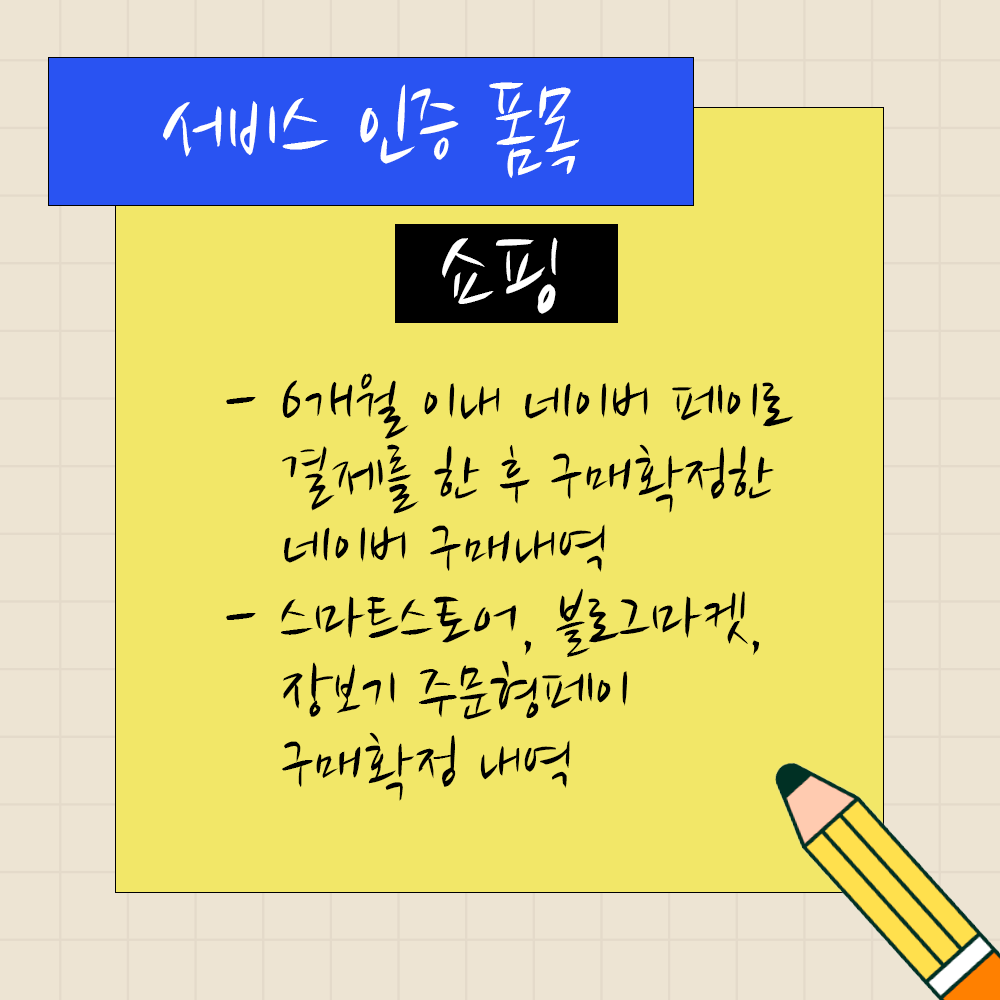 서비스 인증 폼목
쇼핑
- 6개월 이내 네이버 페이로
결제를 한 후 구매확정한
네이버 구매내역
- 스마트스토어, 블로그마켓,
장보기 주문형페이
구매확정 내역